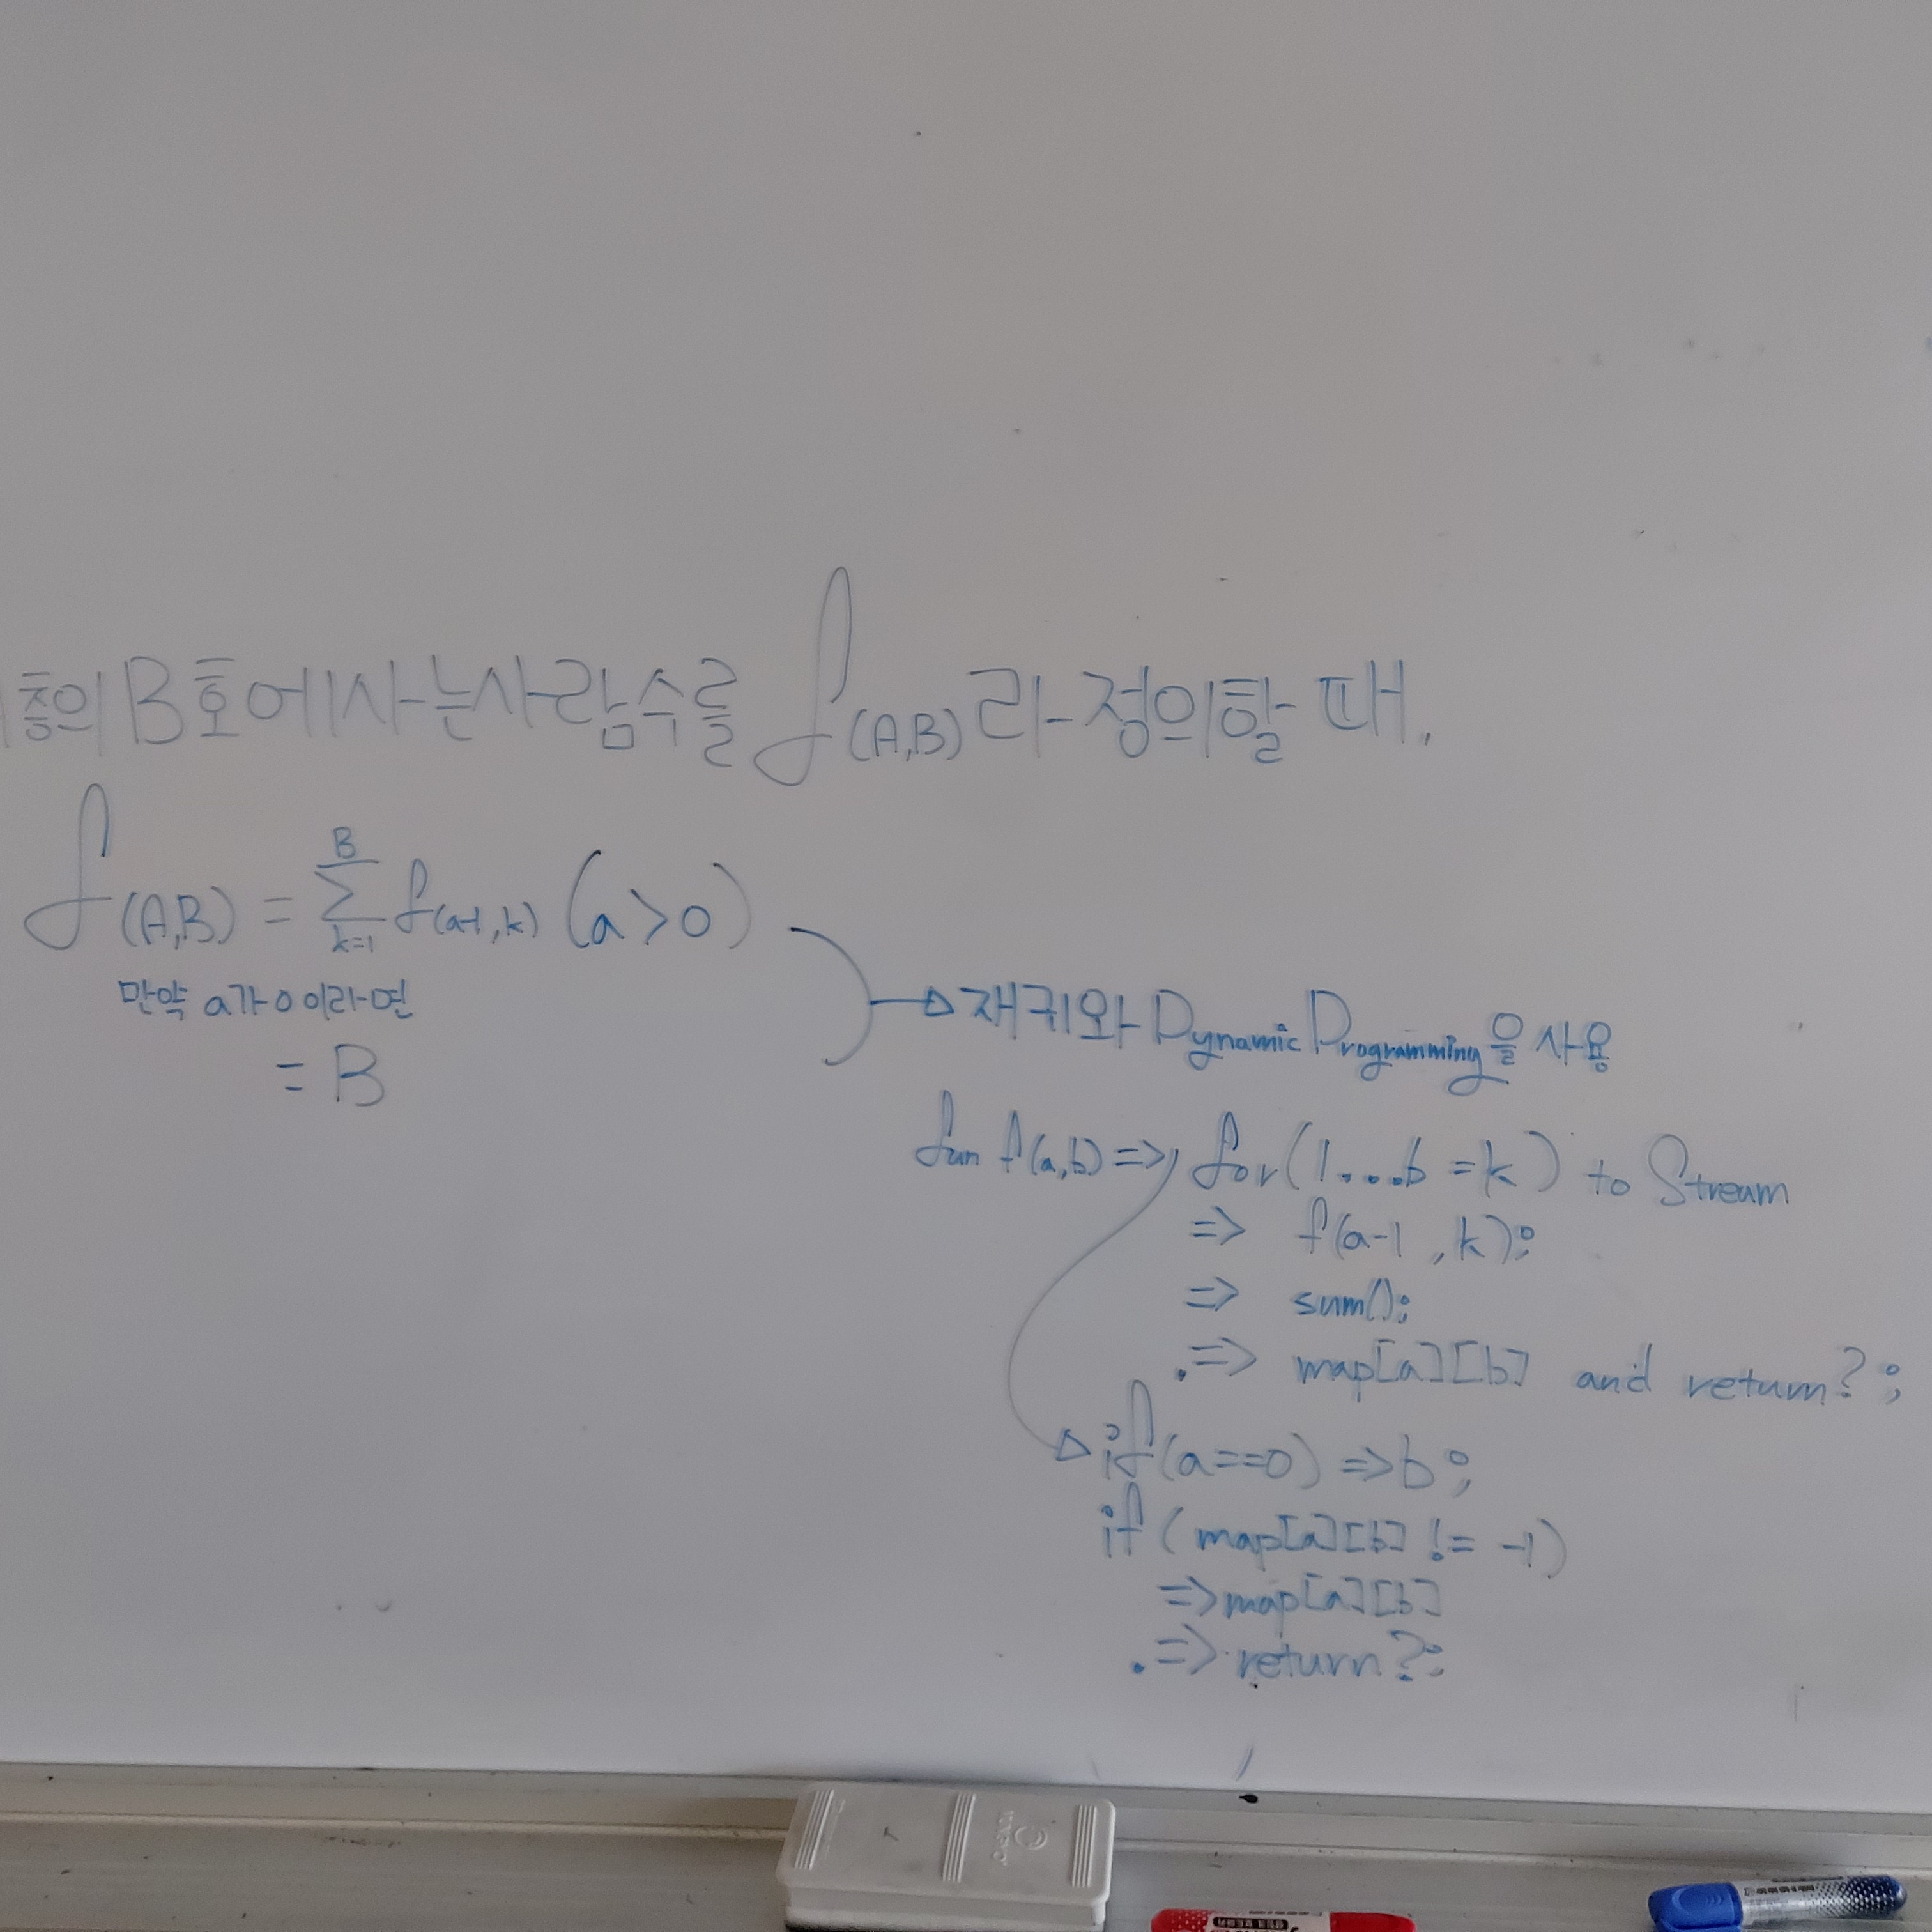 층의 B호에 사는 사람 수를 f(A,B)라 정의할 때,
f(A,B) = B Σ k=1 f(a-1,k) (a>0)
만약 a가 0이라면
= B
재귀와 Dynamic Programming을 사용
fun f(a,b) => for(1...b =k) to Stream
=> f(a-1 ,k);
=> sum();
.=> map[a][b] and return?;
if(a==0) => b;
if( map[a][b] != -1)
=> map[a][b]
.=> return?;